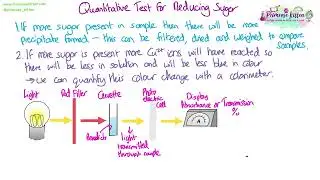 Quantitative Test for Reducing Sugar
1. If more sugar present in sample then there will be more
precipitate formed - this can be filtered, dried and weighed to compare
samples.
2. If more sugar is present more Cu²⁺ ions will have reacted so
there will be less in solution and will be less blue in colour
→ we can quantify this colour change with a colorimeter.
Light Red Filter Cuvette Photo
electric
cell Display
Absorbance or Transmission
%
A
light
transmitted
through sample